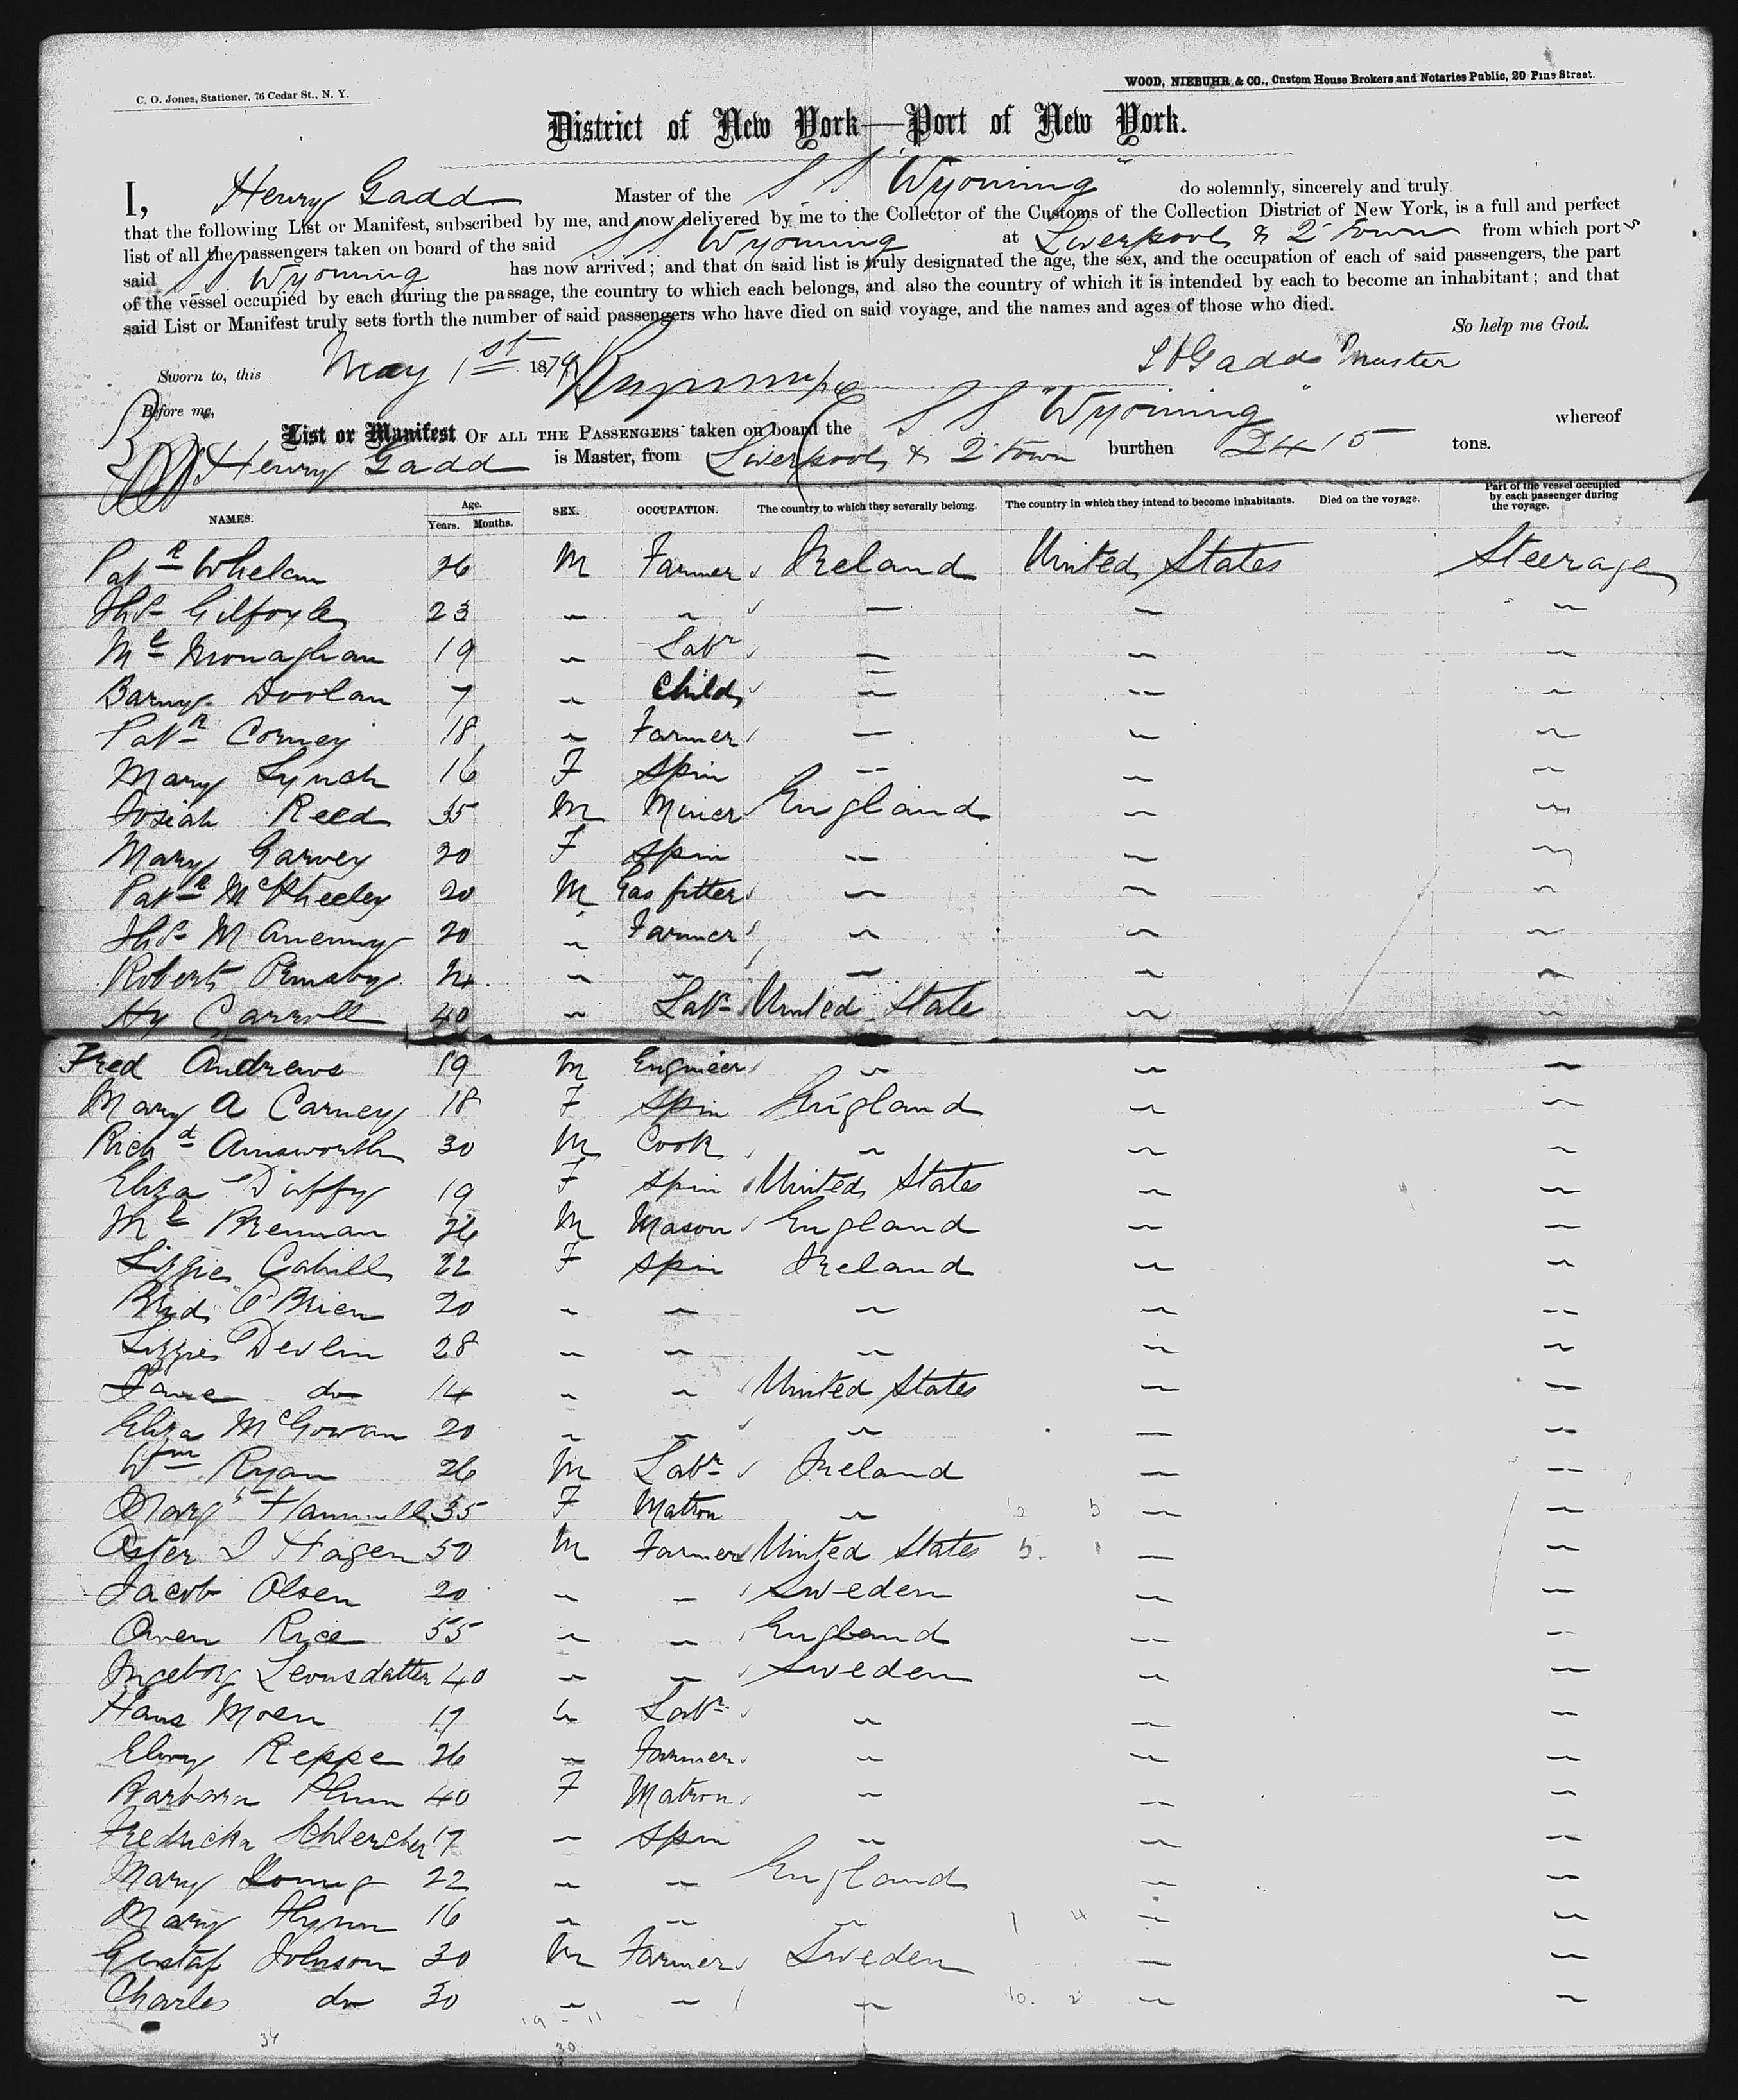 C. O. Jones, Stationer, 76 Cedar St., N. Y.
WOOD, NIEBUHR & CO., Custom House Brokers and Notaries Public, 20 Pine Street.
District of New York—Port of New York.
I, Henry Gadd Master of the S S "Wyoming" do solemnly, sincerely and truly
that the following List or Manifest, subscribed by me, and now delivered by me to the Collector of the Customs of the Collection District of New York, is a full and perfect
list of all the passengers taken on board of the said S S Wyoming at Liverpool & Q'town from which ports
said S S. Wyoming has now arrived; and that on said list is truly designated the age, the sex, and the occupation of each of said passengers, the part
of the vessel occupied by each during the passage, the country to which each belongs, and also the country of which it is intended by each to become an inhabitant; and that
said List or Manifest truly sets forth the number of said passengers who have died on said voyage, and the names and ages of those who died.
So help me God.
Sworn to, this May 1st 1879 Gadd Master
Before me,
List or Manifest OF ALL THE PASSENGERS taken on board the S S "Wyoming" whereof
Henry Gadd is Master, from Liverpool & Q'town burthen 2415 tons.
NAMES. Age. Years. Months. SEX. OCCUPATION. The country to which they severally belong. The country in which they intend to become inhabitants. Died on the voyage. Part of the vessel occupied by each passenger during the voyage.
Patk Whelan 26 M Farmer Ireland United States Steerage
Ths Gilfoyle 23 " " — — "
Ml Monaghan 19 " Labr — — "
Barny Doolan 7 " Child — — "
Patk Corney 18 " Farmer — — "
Mary Lynch 16 F Spin — — "
Josiah Reed 35 M Miner England — "
Mary Garvey 20 F Spin — — "
Patk McPheeley 20 M Gas fitter — — "
Ths M 20 " Farmer — — "
Robert Ormsby 24 " " — — "
Hy Carroll 40 " Labr United State — "
Fred Andrews 19 M Engineer " — "
Mary A Carney 18 F Spin England — "
Richd Ainsworth 30 M Cook " — "
Eliza Duffy 19 F Spin United States — "
Ml Brennan 26 M Mason England — "
Lizzie Cahill 22 F Spin Ireland — "
Brid O'Brien 20 " — — — "
Lizzie Devlin 28 " — — — "
Jane do 14 " " United States — "
Eliza McGowan 20 " " " — "
Wm Ryan 26 M Labr Ireland — "
Margt 35 F Matron " — "
I Hagen 50 M Farmer United States — "
Jacob Olsen 20 " — Sweden — "
Owen Rice 55 " " England — "
Ingeborg Leonsdatter 40 " " Sweden — "
Hans Moen 19 " Labr " — "
Reppe 26 " Farmer " — "
Barbara 40 F Matron " — "
Fredricka 17 — Spin " — "
Mary Young 22 " — England — "
Mary Flynn 16 " — " — "
Gustaf Johnson 30 M Farmer Sweden — "
Charles do 30 " — " — "
34
19 - 11
30